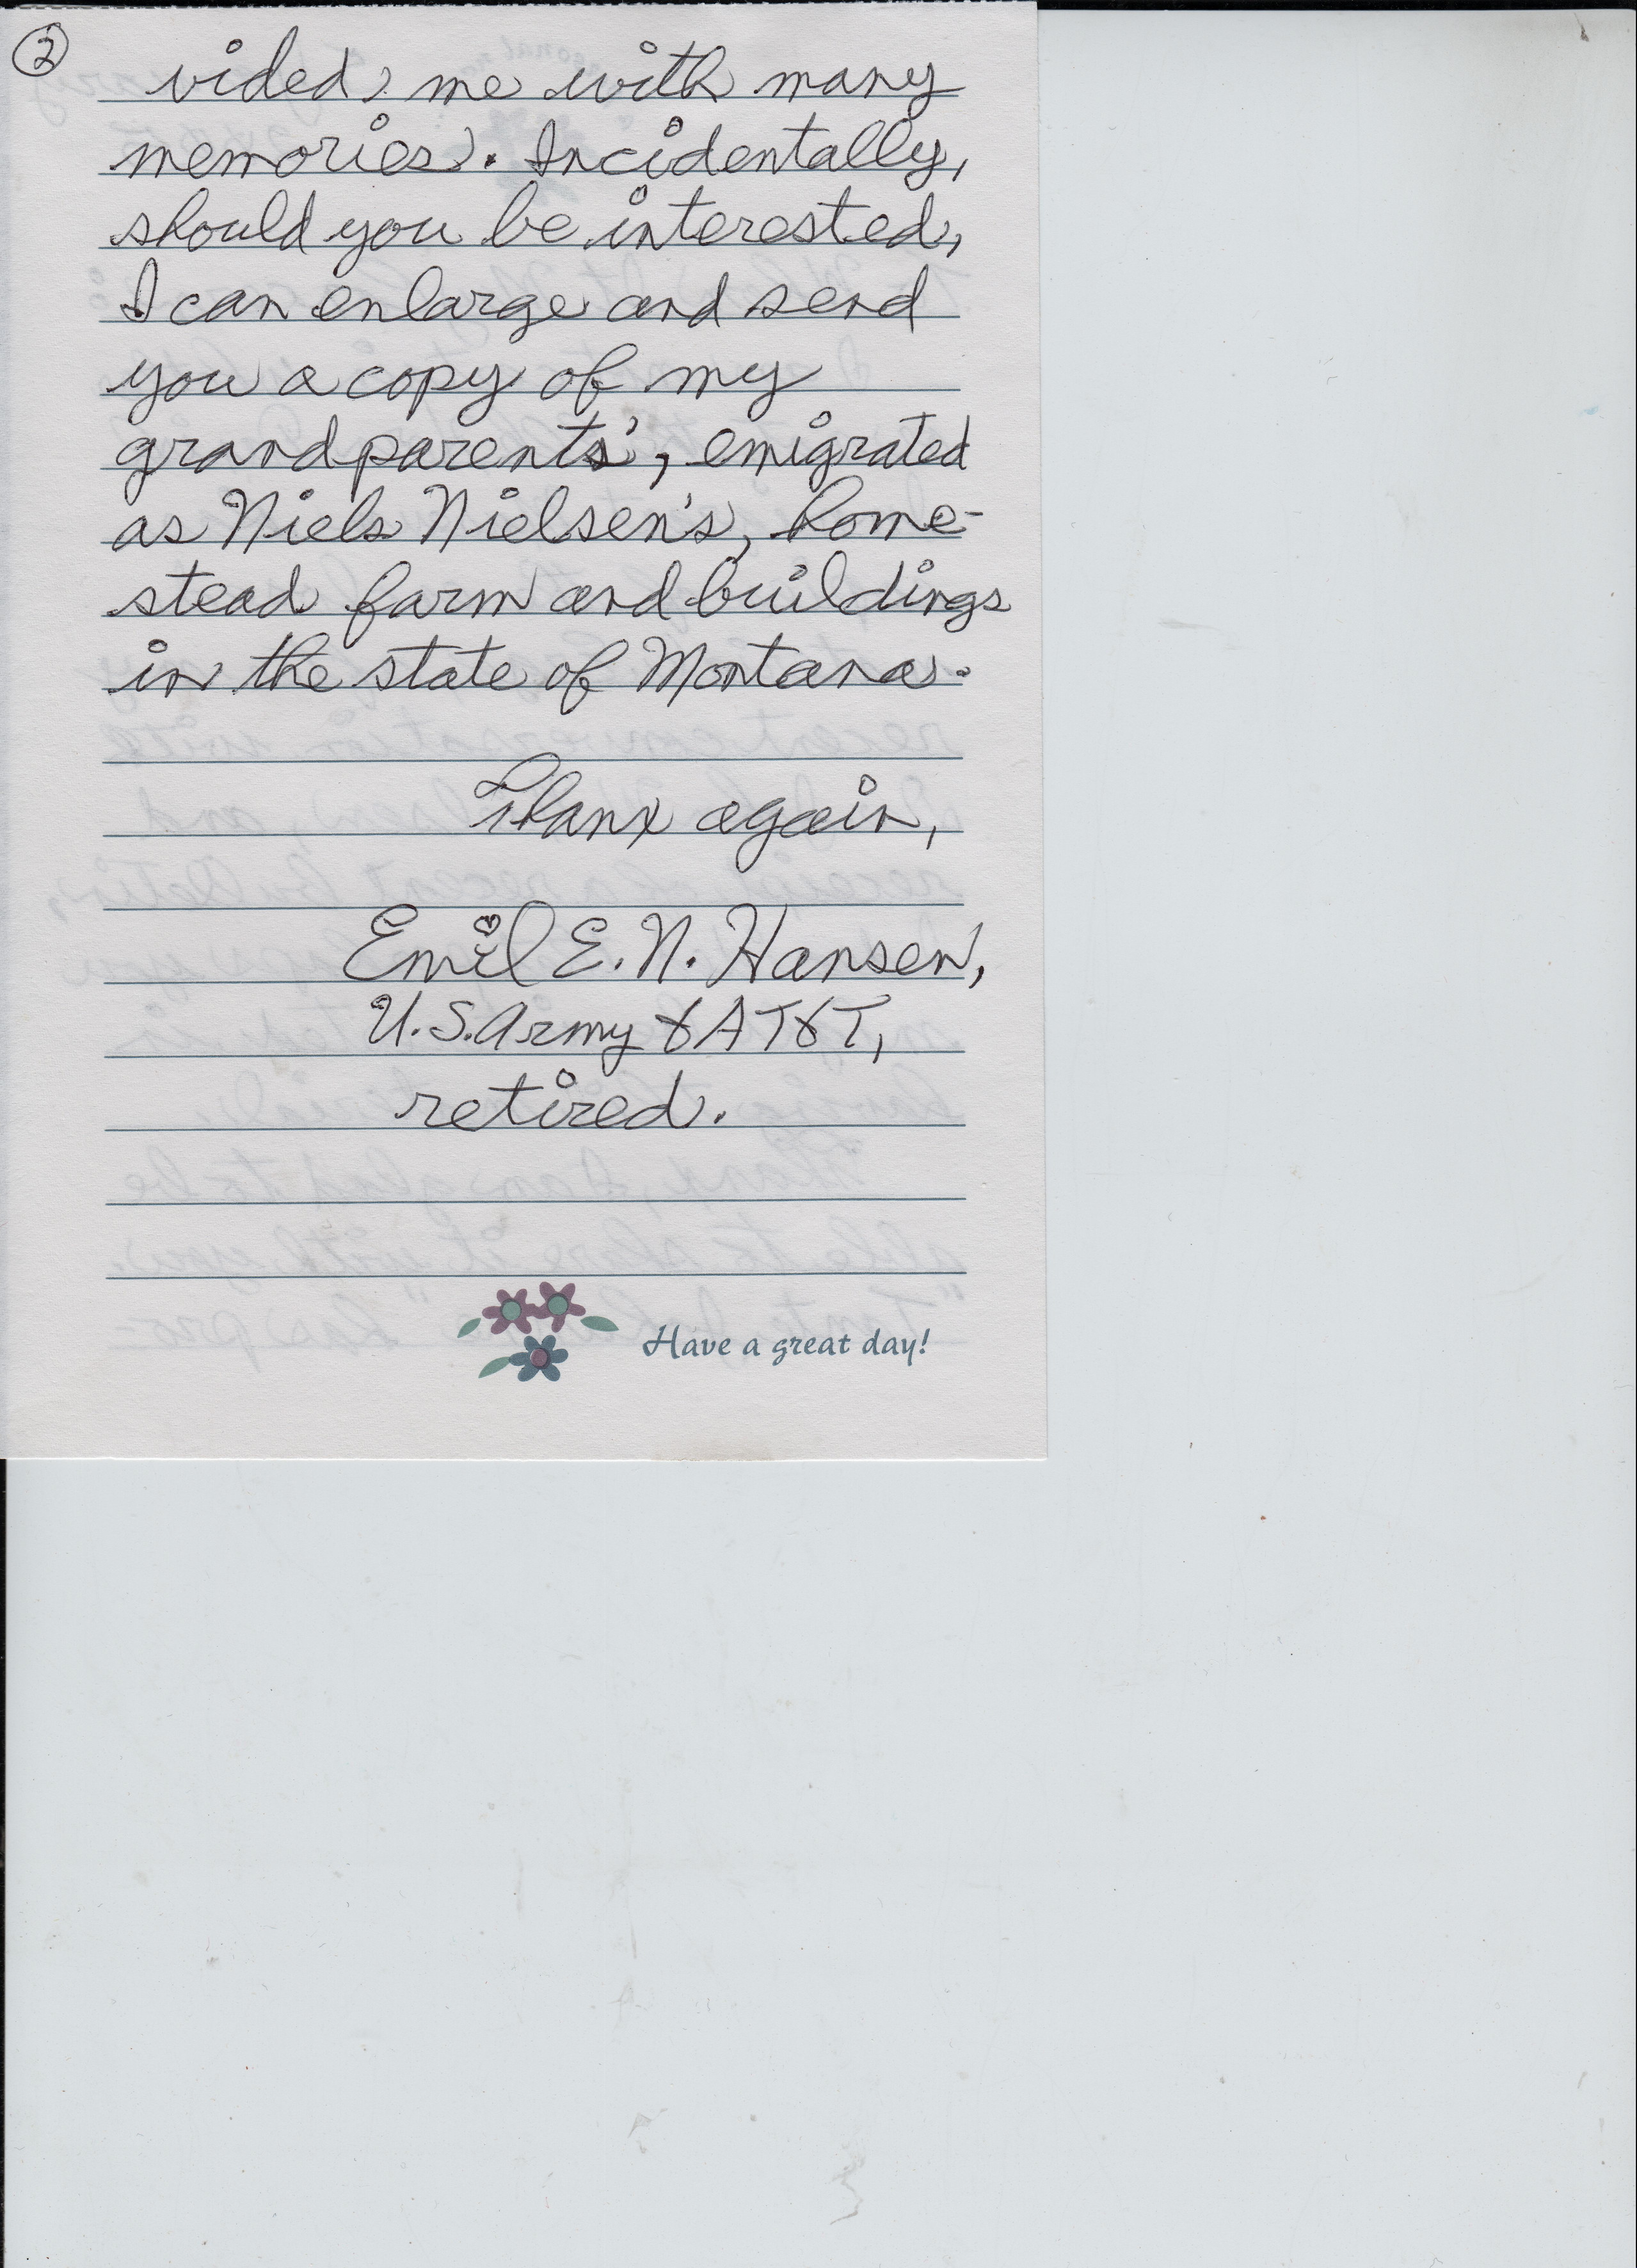 2
vided me with many
memories. Incidentally,
should you be interested,
I can enlarge and send
you a copy of my
grandparents', emigrated
as Niels Nielsen's, home-
stead farm and buildings
in the state of Montana.
Thanx again,
Emil E. N. Hansen,
U.S. Army & AT&T,
retired.
Have a great day!